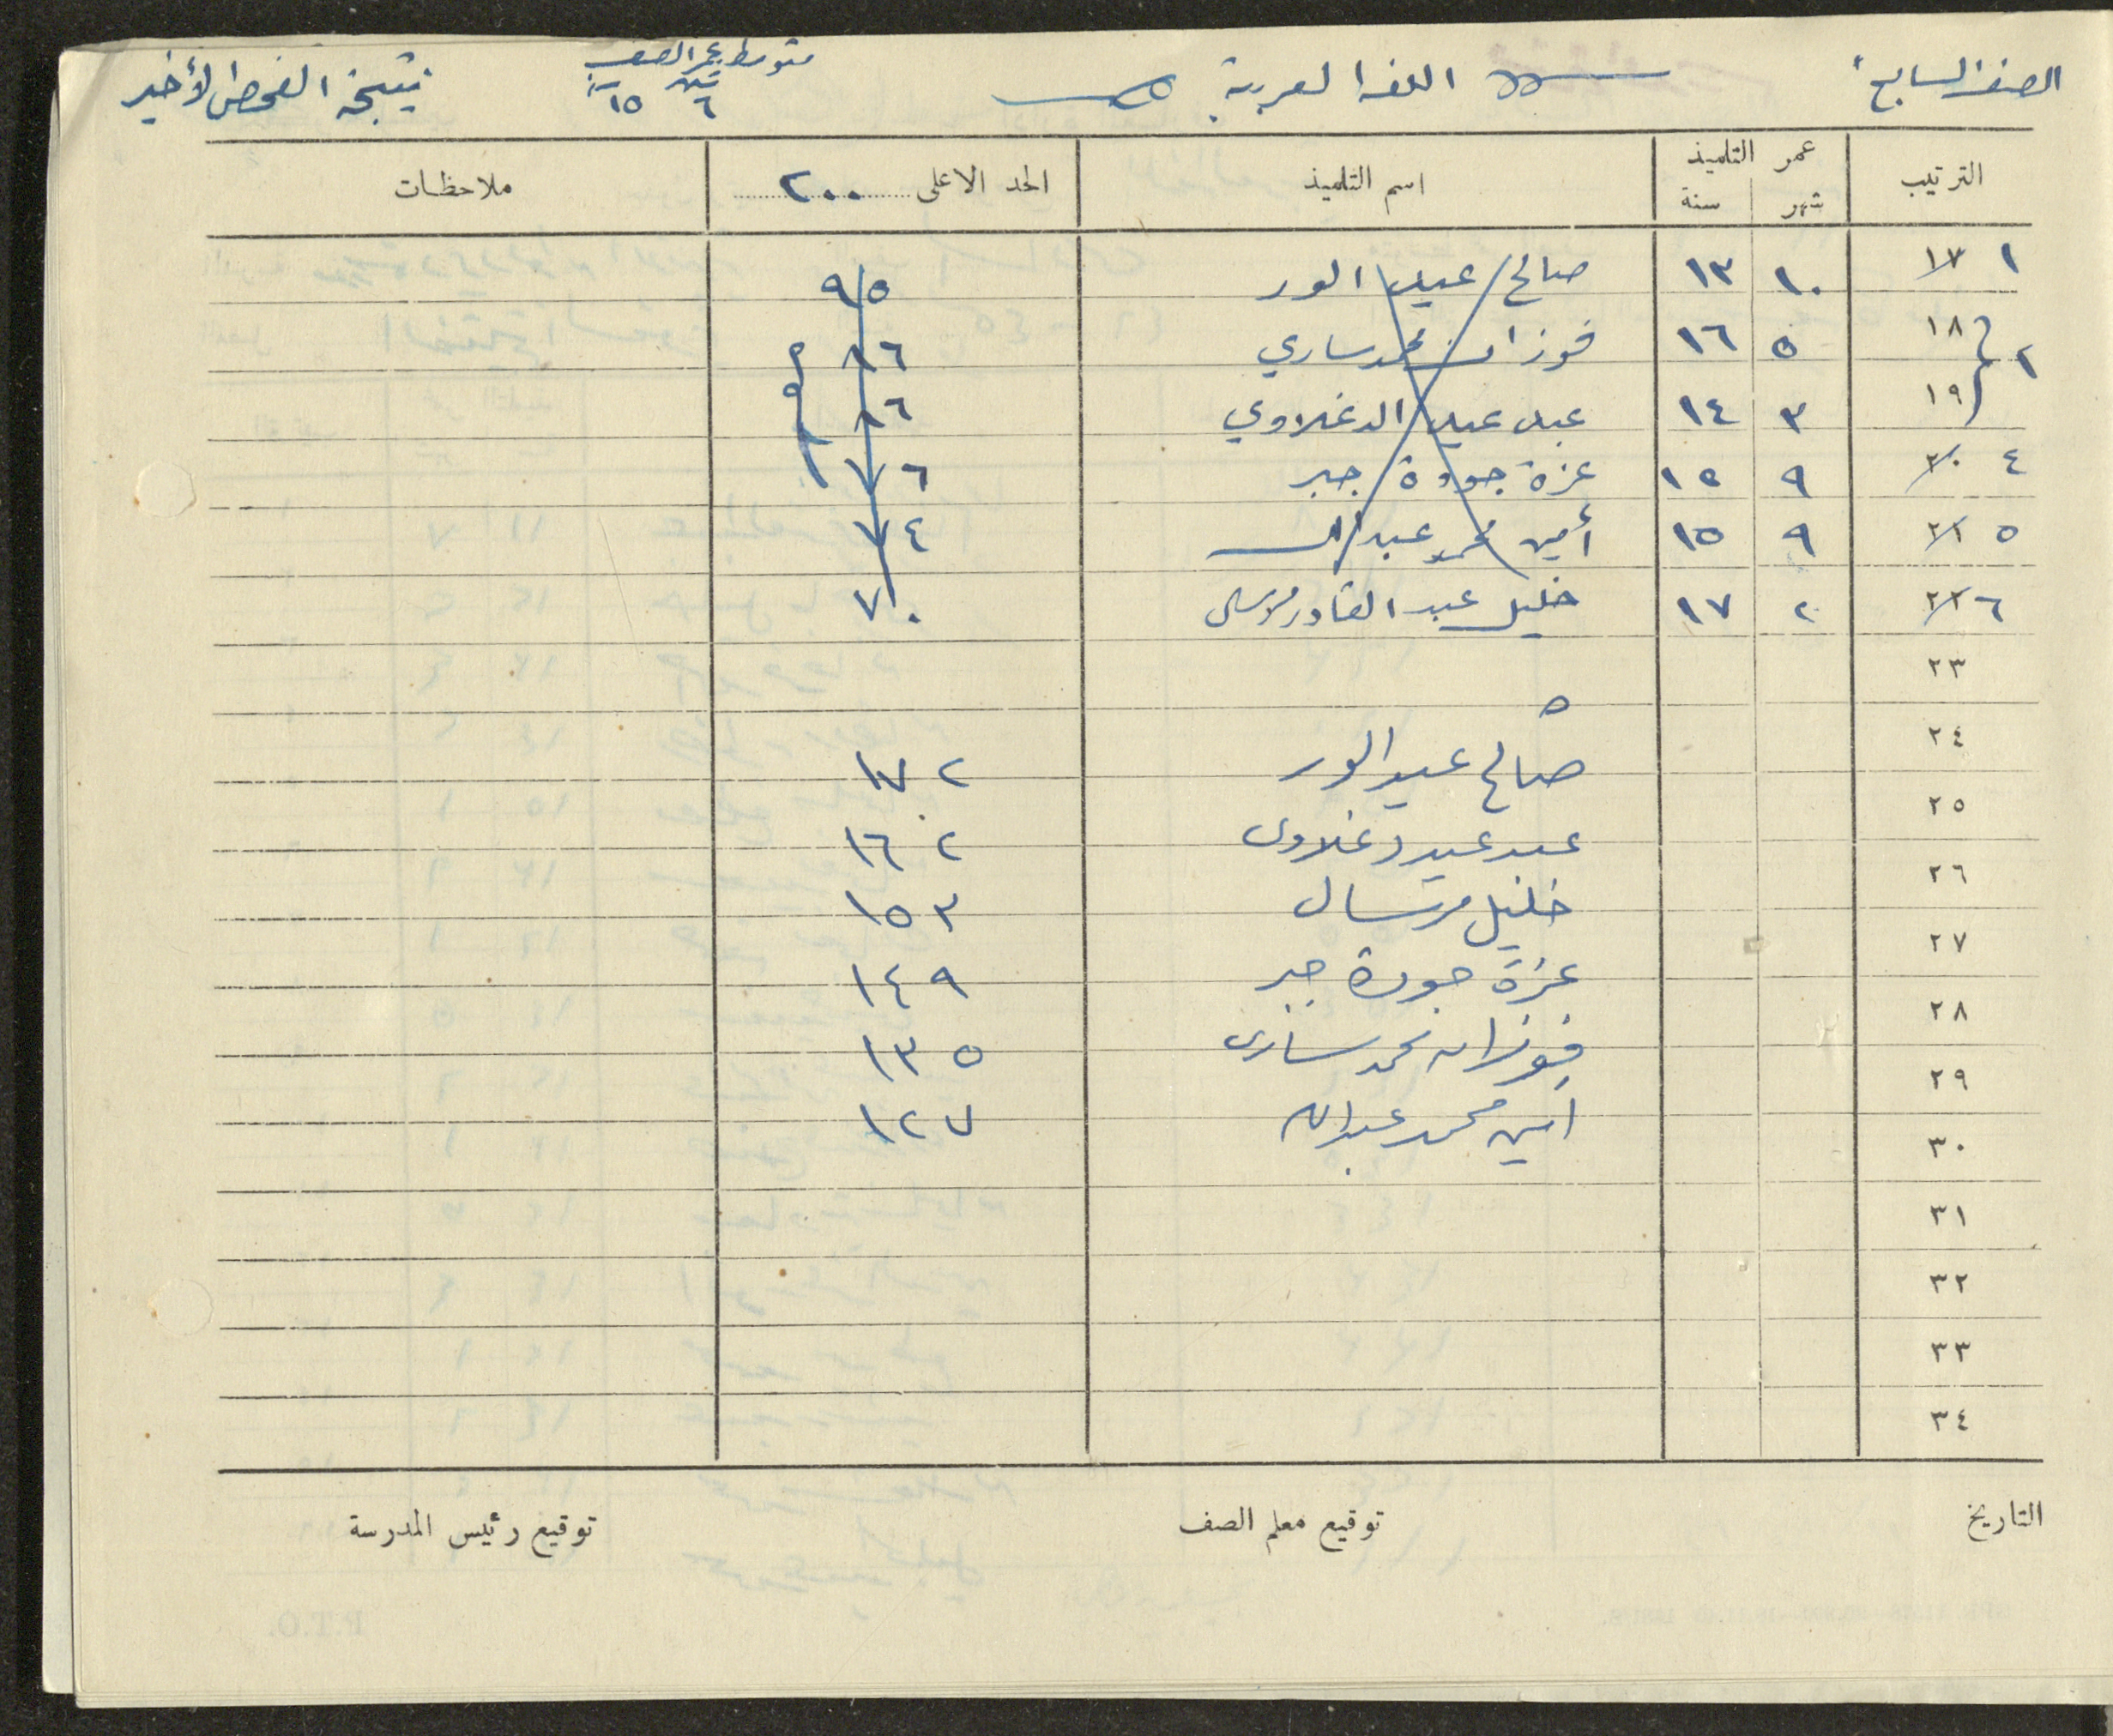 الصف السابع
اللغة العربية
متوسط عمر الصف
٦ ١٥
نتيجة الفحص الأخير
الترتيب عمر التلميذ اسم التلميذ الحد الاعلى ٢٠٠ ملاحظات
شهر سنة
١ ١٧ ١٠ ١٣ صالح عيد الور ٩٥
١٨ ٥ ١٦ فوزان محمد ساري ٨٦
٢
١٩ ٣ ١٤ عبد عيد الدغلاوي ٨٦
٤ ٢٠ ٩ ١٥ عزة جودة جبر ٧٦
٥ ٢١ ٩ ١٥ أمين محمد عبد الله ٧٤
٦ ٢٢ ٢ ١٧ خليل عبد القادر مرسال ٧٠
٢٣
٢٤ صالح عيد الور ١٧٢
٢٥ عبد عيد دغلاوى ١٦٢
٢٦ خليل مرسال ١٥٣
٢٧ عزة جودة جبر ١٤٩
٢٨ فوزان محمد سارى ١٣٥
٢٩ امين محمد عبدالله ١٢٧
٣٠
٣١
٣٢
٣٣
٣٤
التاريخ توقيع معلم الصف توقيع رئيس المدرسة
P.T.O.